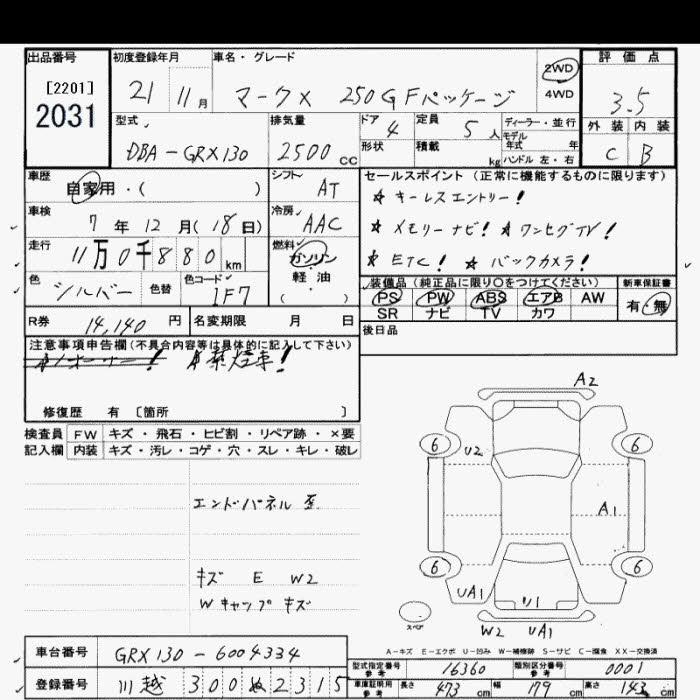 出品番号 初度登録年月 車名・グレード 評価点
[2201]
2031
21 11月 マークX 250G Fパッケージ 2WD 4WD 3.5
型式 排気量 ドア 定員 ディーラー・並行 外装 内装
DBA-GRX130 2500cc 4 5人 モデル年式 年 C B
形状 積載 kg ハンドル 左・右
車歴 シフト セールスポイント(正常に機能するものに限ります)
自家用・( ) AT ☆キーレスエントリー!
車検 冷房
7年12月(18日) AAC ☆メモリーナビ! ☆ワンセグTV!
走行 燃料
11万0千880km ガソリン ☆ETC! ☆バックカメラ!
軽・油
色 色替 色コード 装備品(純正品に限り○をつけてください) 新車保証書
シルバー 1F7 ( ) PS PW ABS エアB AW 有・無
SR ナビ TV カワ
R券 14,140円 名変期限 月 日 後日品
注意事項申告欄(不具合内容等は具体的に記入して下さい)
☆禁煙車!
修復歴 有 〔箇所 〕
検査員 FW キズ・飛石・ヒビ割・リペア跡・×要
記入欄 内装 キズ・汚レ・コゲ・穴・スレ・キレ・破レ
A2
6 U2 6
エンドパネル 歪
A1
6 6
キズ E W2
Wキャップキズ
UA1 U1
スペア
W2 UA1
A-キズ E-エクボ U-凹み W-補修跡 S-サビ C-腐食 XX-交換済
車台番号 GRX130-6004334
型式指定番号 参考 16360 類別区分番号 参考 0001
登録番号 川越 300 ぬ 2315
車庫証明用 参考 長さ 473cm 幅 179cm 高さ 143cm